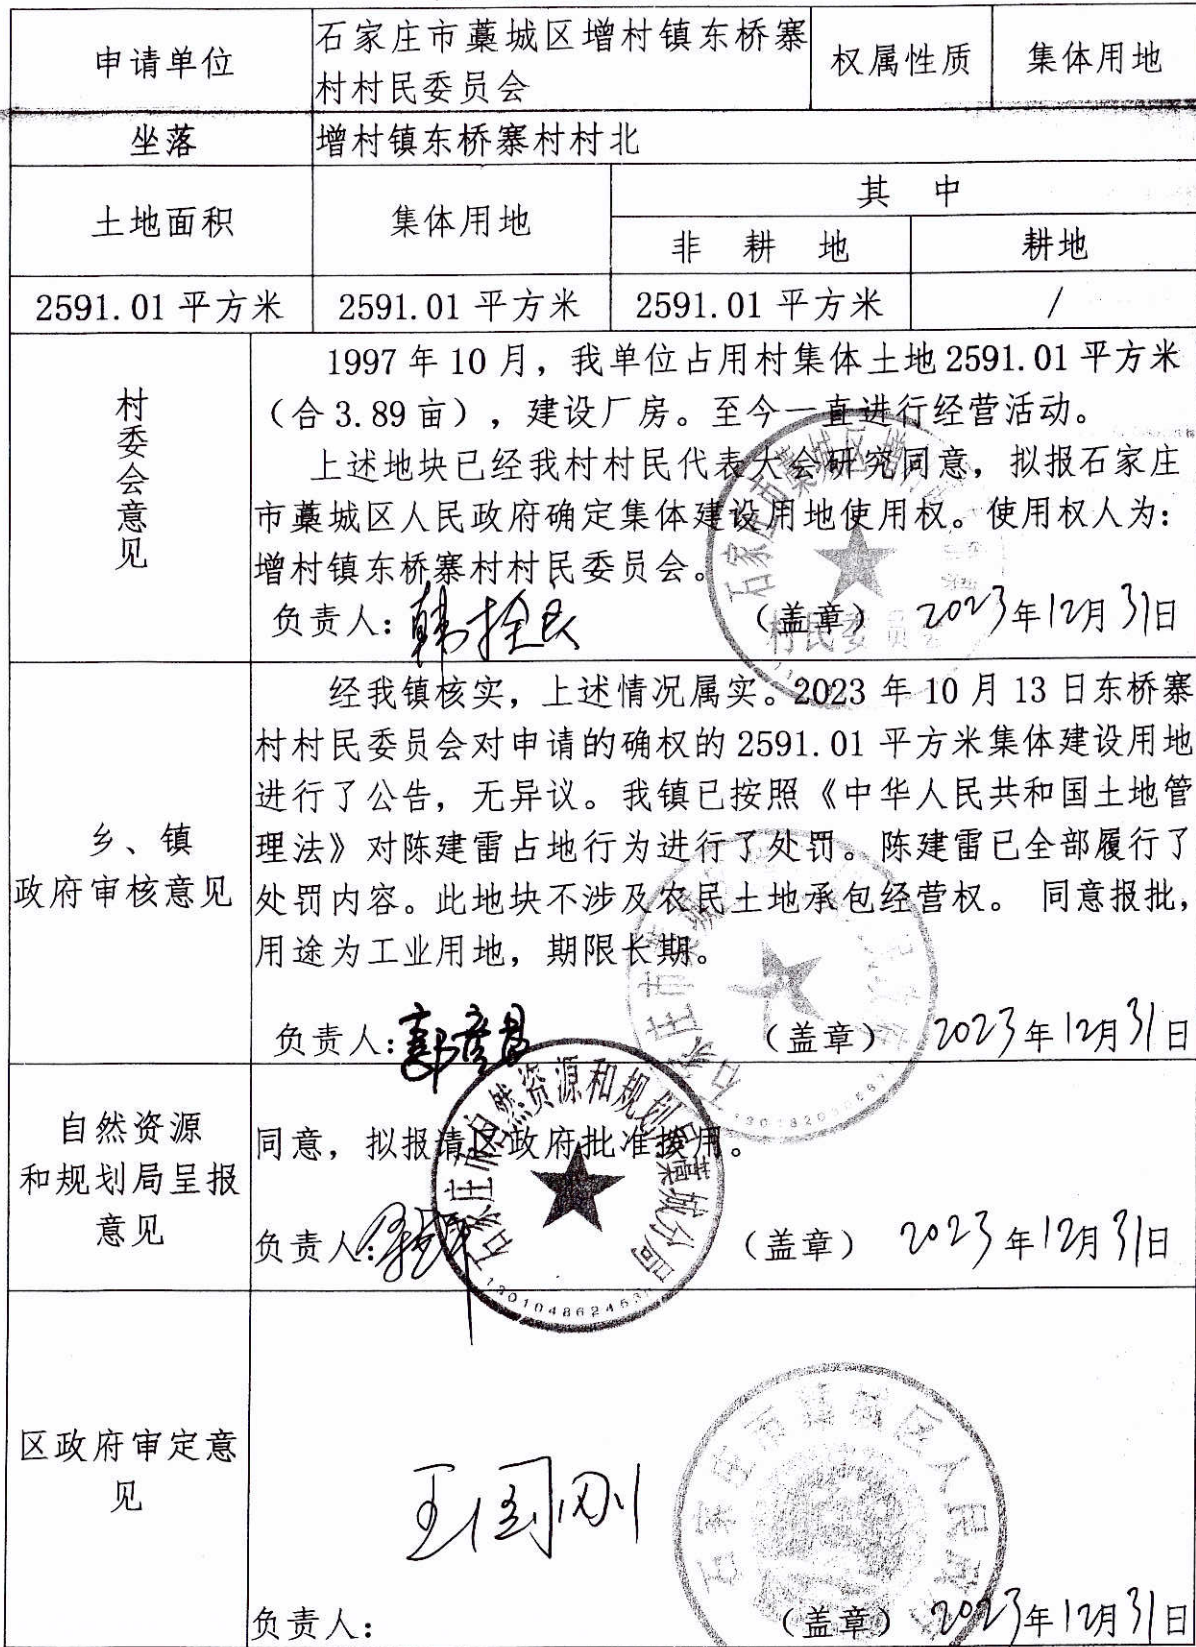 申请单位
石家庄市藁城区增村镇东桥寨
村村民委员会
权属性质
集体用地
坐落
增村镇东桥寨村村北
土地面积
集体用地
其 中
非 耕 地
耕地
2591.01 平方米
2591.01 平方米
2591.01 平方米
/
村委会意见
1997 年 10 月，我单位占用村集体土地 2591.01 平方米
（合 3.89 亩），建设厂房。至今一直进行经营活动。
上述地块已经我村村民代表大会研究同意，拟报石家庄
市藁城区人民政府确定集体建设用地使用权。使用权人为：
增村镇东桥寨村村民委员会。
负责人：
（盖章） 2023年12月31日
村民委员会
乡、镇
政府审核意见
经我镇核实，上述情况属实。2023 年 10 月 13 日东桥寨
村村民委员会对申请的确权的 2591.01 平方米集体建设用地
进行了公告，无异议。我镇已按照《中华人民共和国土地管
理法》对陈建雷占地行为进行了处罚。陈建雷已全部履行了
处罚内容。此地块不涉及农民土地承包经营权。 同意报批，
用途为工业用地，期限长期。
负责人：
（盖章） 2023年12月31日
自然资源
和规划局呈报
意见
同意，拟报请区政府批准使用。
负责人：
（盖章） 2023年12月31日
石家庄市自然资源和规划局藁城分局
区政府审定意
见
王国刚
石家庄市藁城区人民政府
负责人：
（盖章） 2023年12月31日